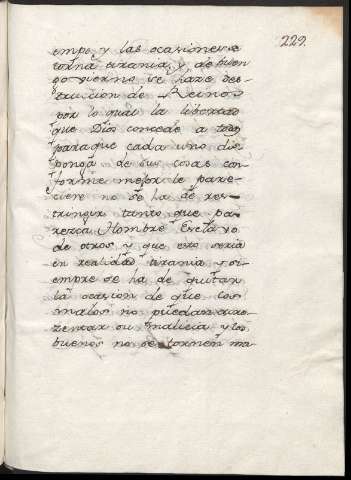 229.
empo, y las ocasiones se
torna tirania, y de buen
govierno se haze des-
truicion de Reinos
por lo qual la libertad
que Dios concede a todos
para que cada uno dis-
ponga de sus cosas con-
forme mejor le pare-
ciere no se ha de res-
tringir tanto que pa-
rezca Hombre Esclavo
de otros y que esto seria
en realidad tirania y si-
empre se ha de quitar
la ocasion de que los
malos no puedan exer-
zentar su malicia y los
buenos no se tornen ma-